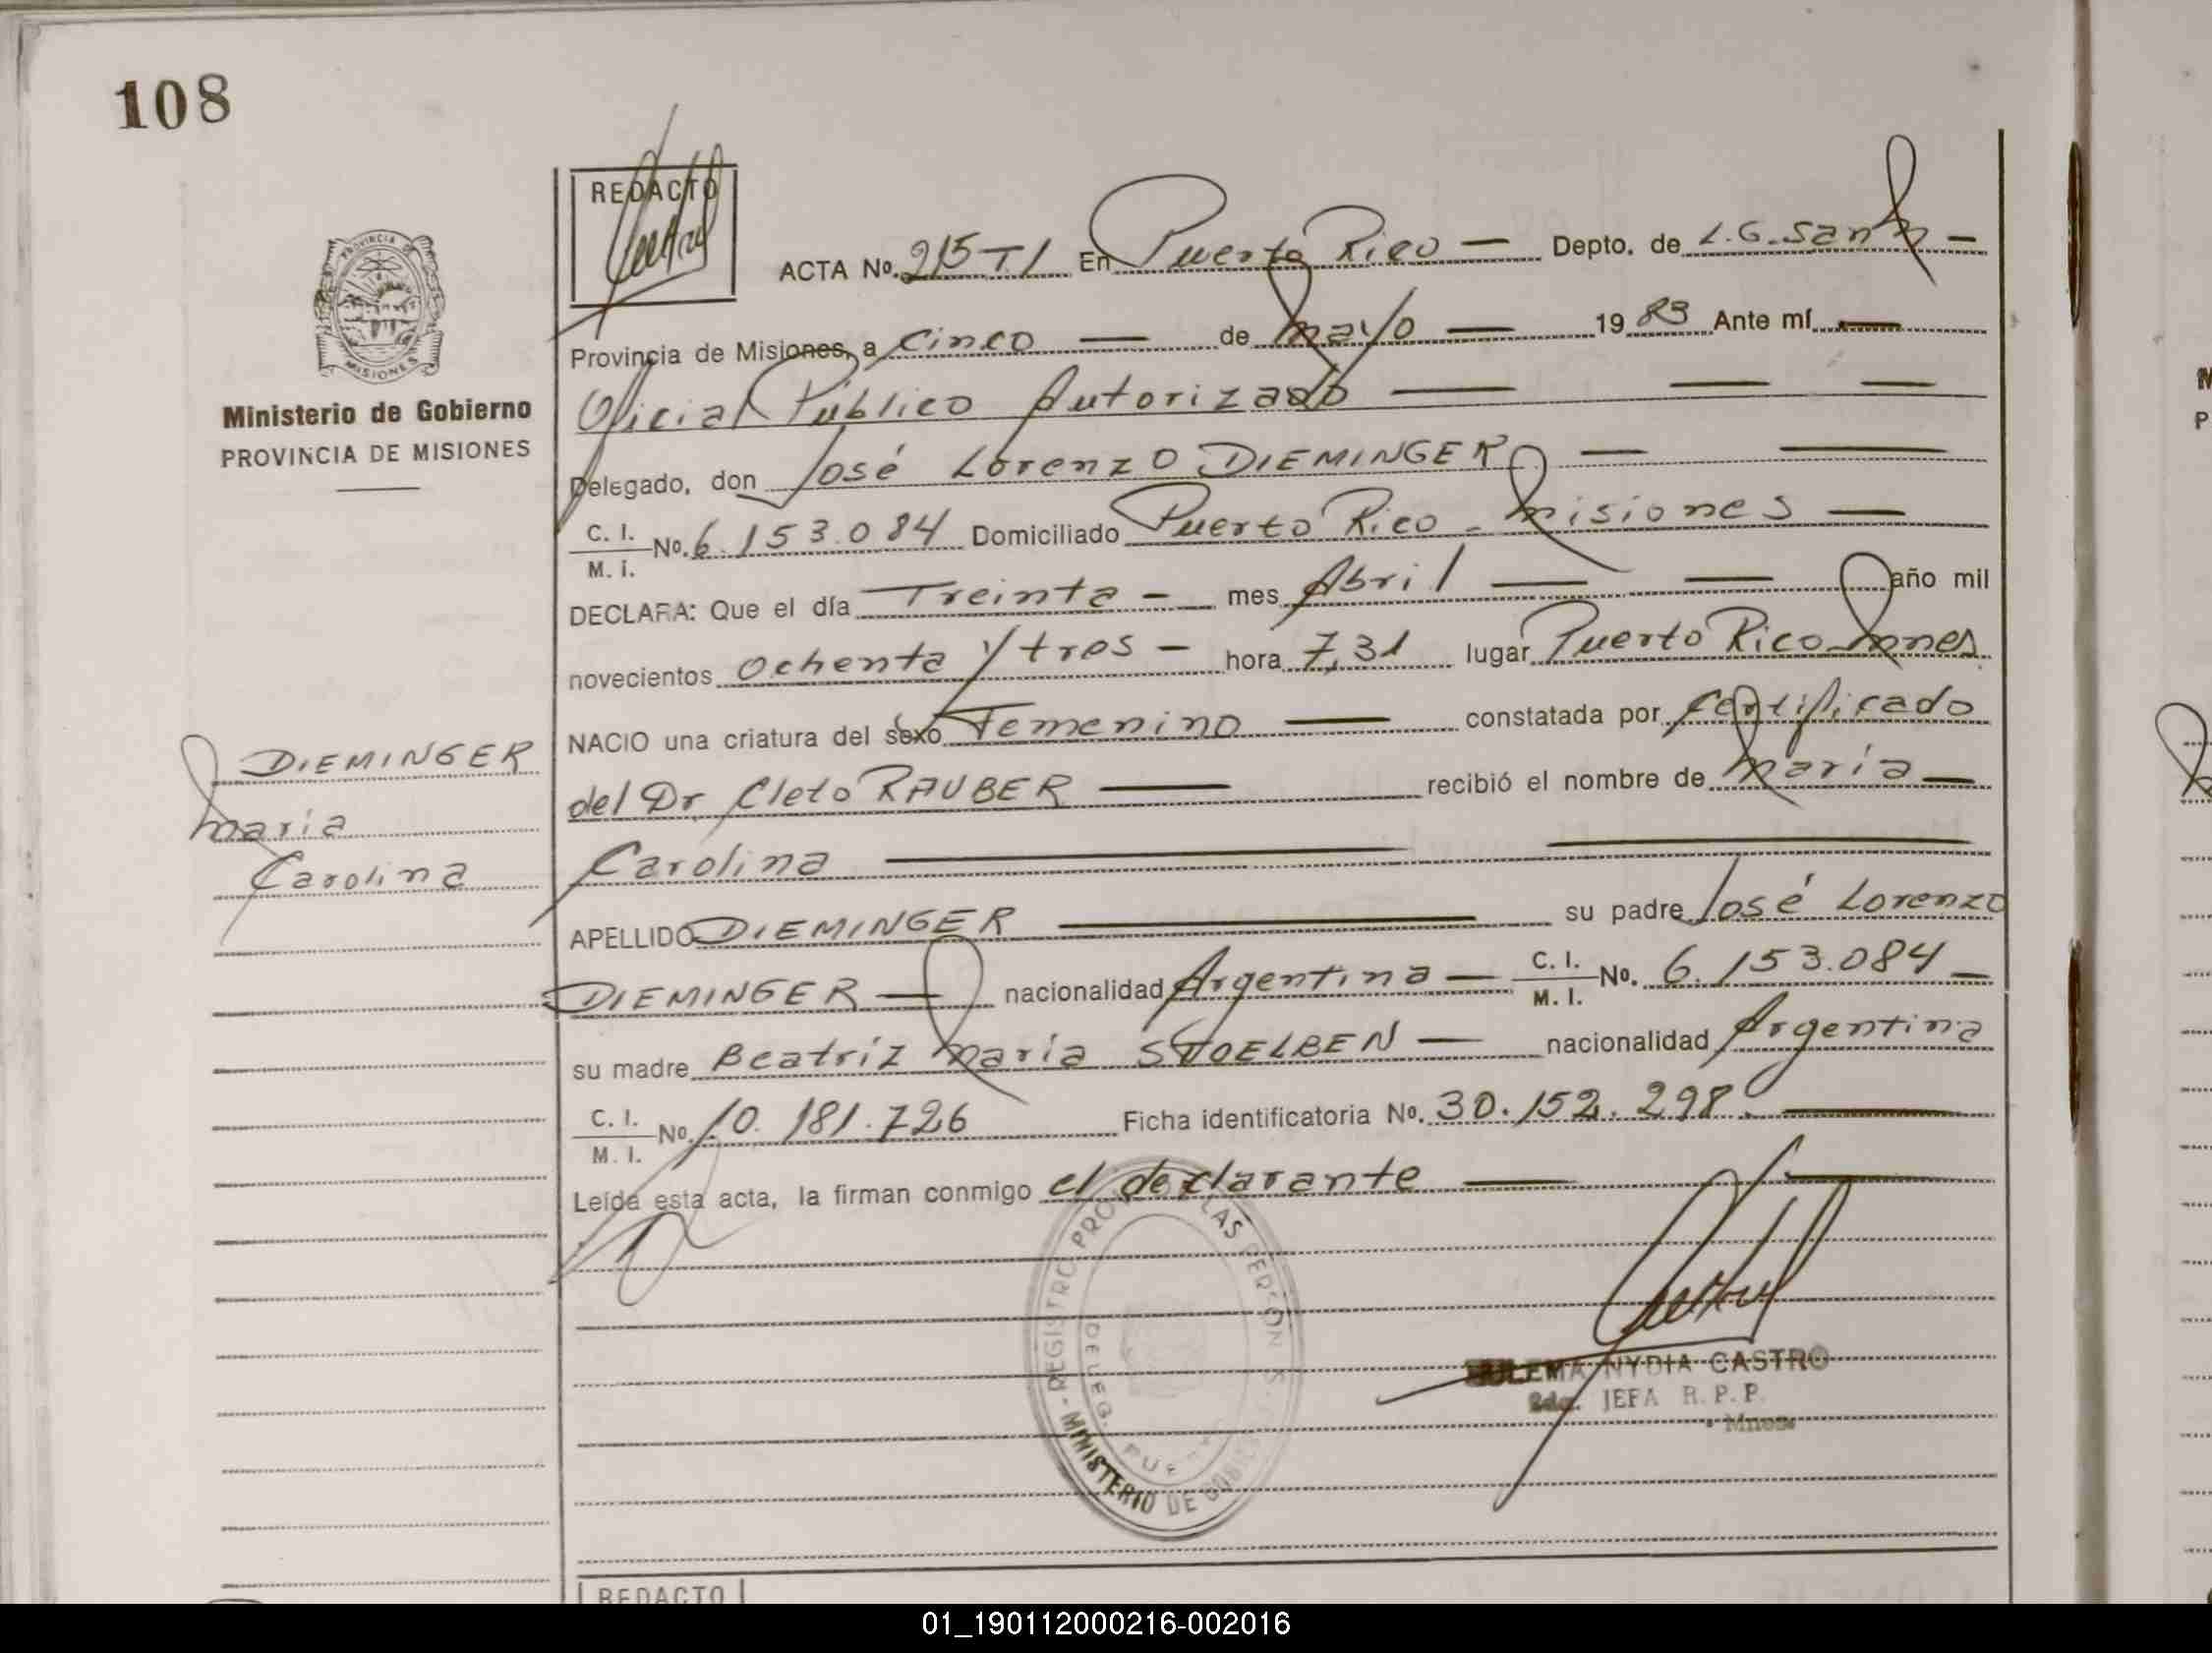 108
REDACTO
ACTA No. 215-T1 En Puerto Rico — Depto. de L.G. San M —
PROVINCIA DE MISIONES
Provincia de Misiones, a cinco — de mayo — 1983 Ante mí —
Ministerio de Gobierno
PROVINCIA DE MISIONES
Oficial Público Autorizado — — —
Delegado, don José Lorenzo DIEMINGER — —
C. I.
M. I. No. 6.153.084 Domiciliado Puerto Rico - Misiones —
DECLARA: Que el día Treinta — mes Abril — — año mil
novecientos ochenta y tres — hora 7,31 lugar Puerto Rico Mnes
NACIO una criatura del sexo Femenino — constatada por certificado
DIEMINGER
María
Carolina
del Dr. Cleto RAUBER — recibió el nombre de María —
Carolina — —
APELLIDO DIEMINGER — su padre José Lorenzo
DIEMINGER — nacionalidad Argentina — C. I.
M. I. No. 6.153.084 —
su madre Beatríz María STOELBEN — nacionalidad Argentina
C. I.
M. I. No. 10.181.726 Ficha identificatoria No. 30.152.298. —
Leída esta acta, la firman conmigo el declarante — —
REGISTRO PRO LAS PERSONAS
DELEG. PUE
MINISTERIO DE GOBI
ZULEMA NYDIA CASTRO
JEFA R. P. P.
Mnes
REDACTO
01_190112000216-002016